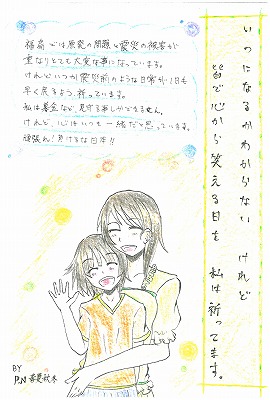 いつになるかわからない けれど
皆で心から笑える日を 私は祈ってます。
福島では原発の問題と震災の被害が
重なりとても大変な事になっています。
けれどいつか震災前のような日常が1日も
早く戻るよう、祈っています。
私は募金など、見守る事しかできません。
けれど、心はいつも一緒だと思っています。
頑張れ!負けるな日本!!
BY
P.N